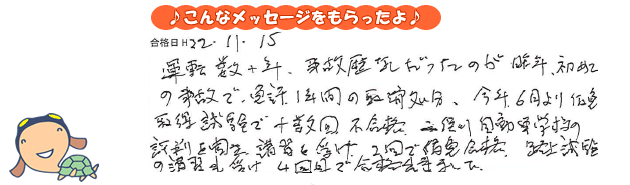 ♪こんなメッセージをもらったよ♪
合格日 H 22. 11. 15
運転数十年、事故歴なしだったのが昨年、初めて
の事故で、免許1年間の取消処分、今年6月より仮免
取得試験で十数回不合格 自動車学校の
講習を受け 2回で仮免合格、 試験
の講習も受け 4回目で合格出来ました。